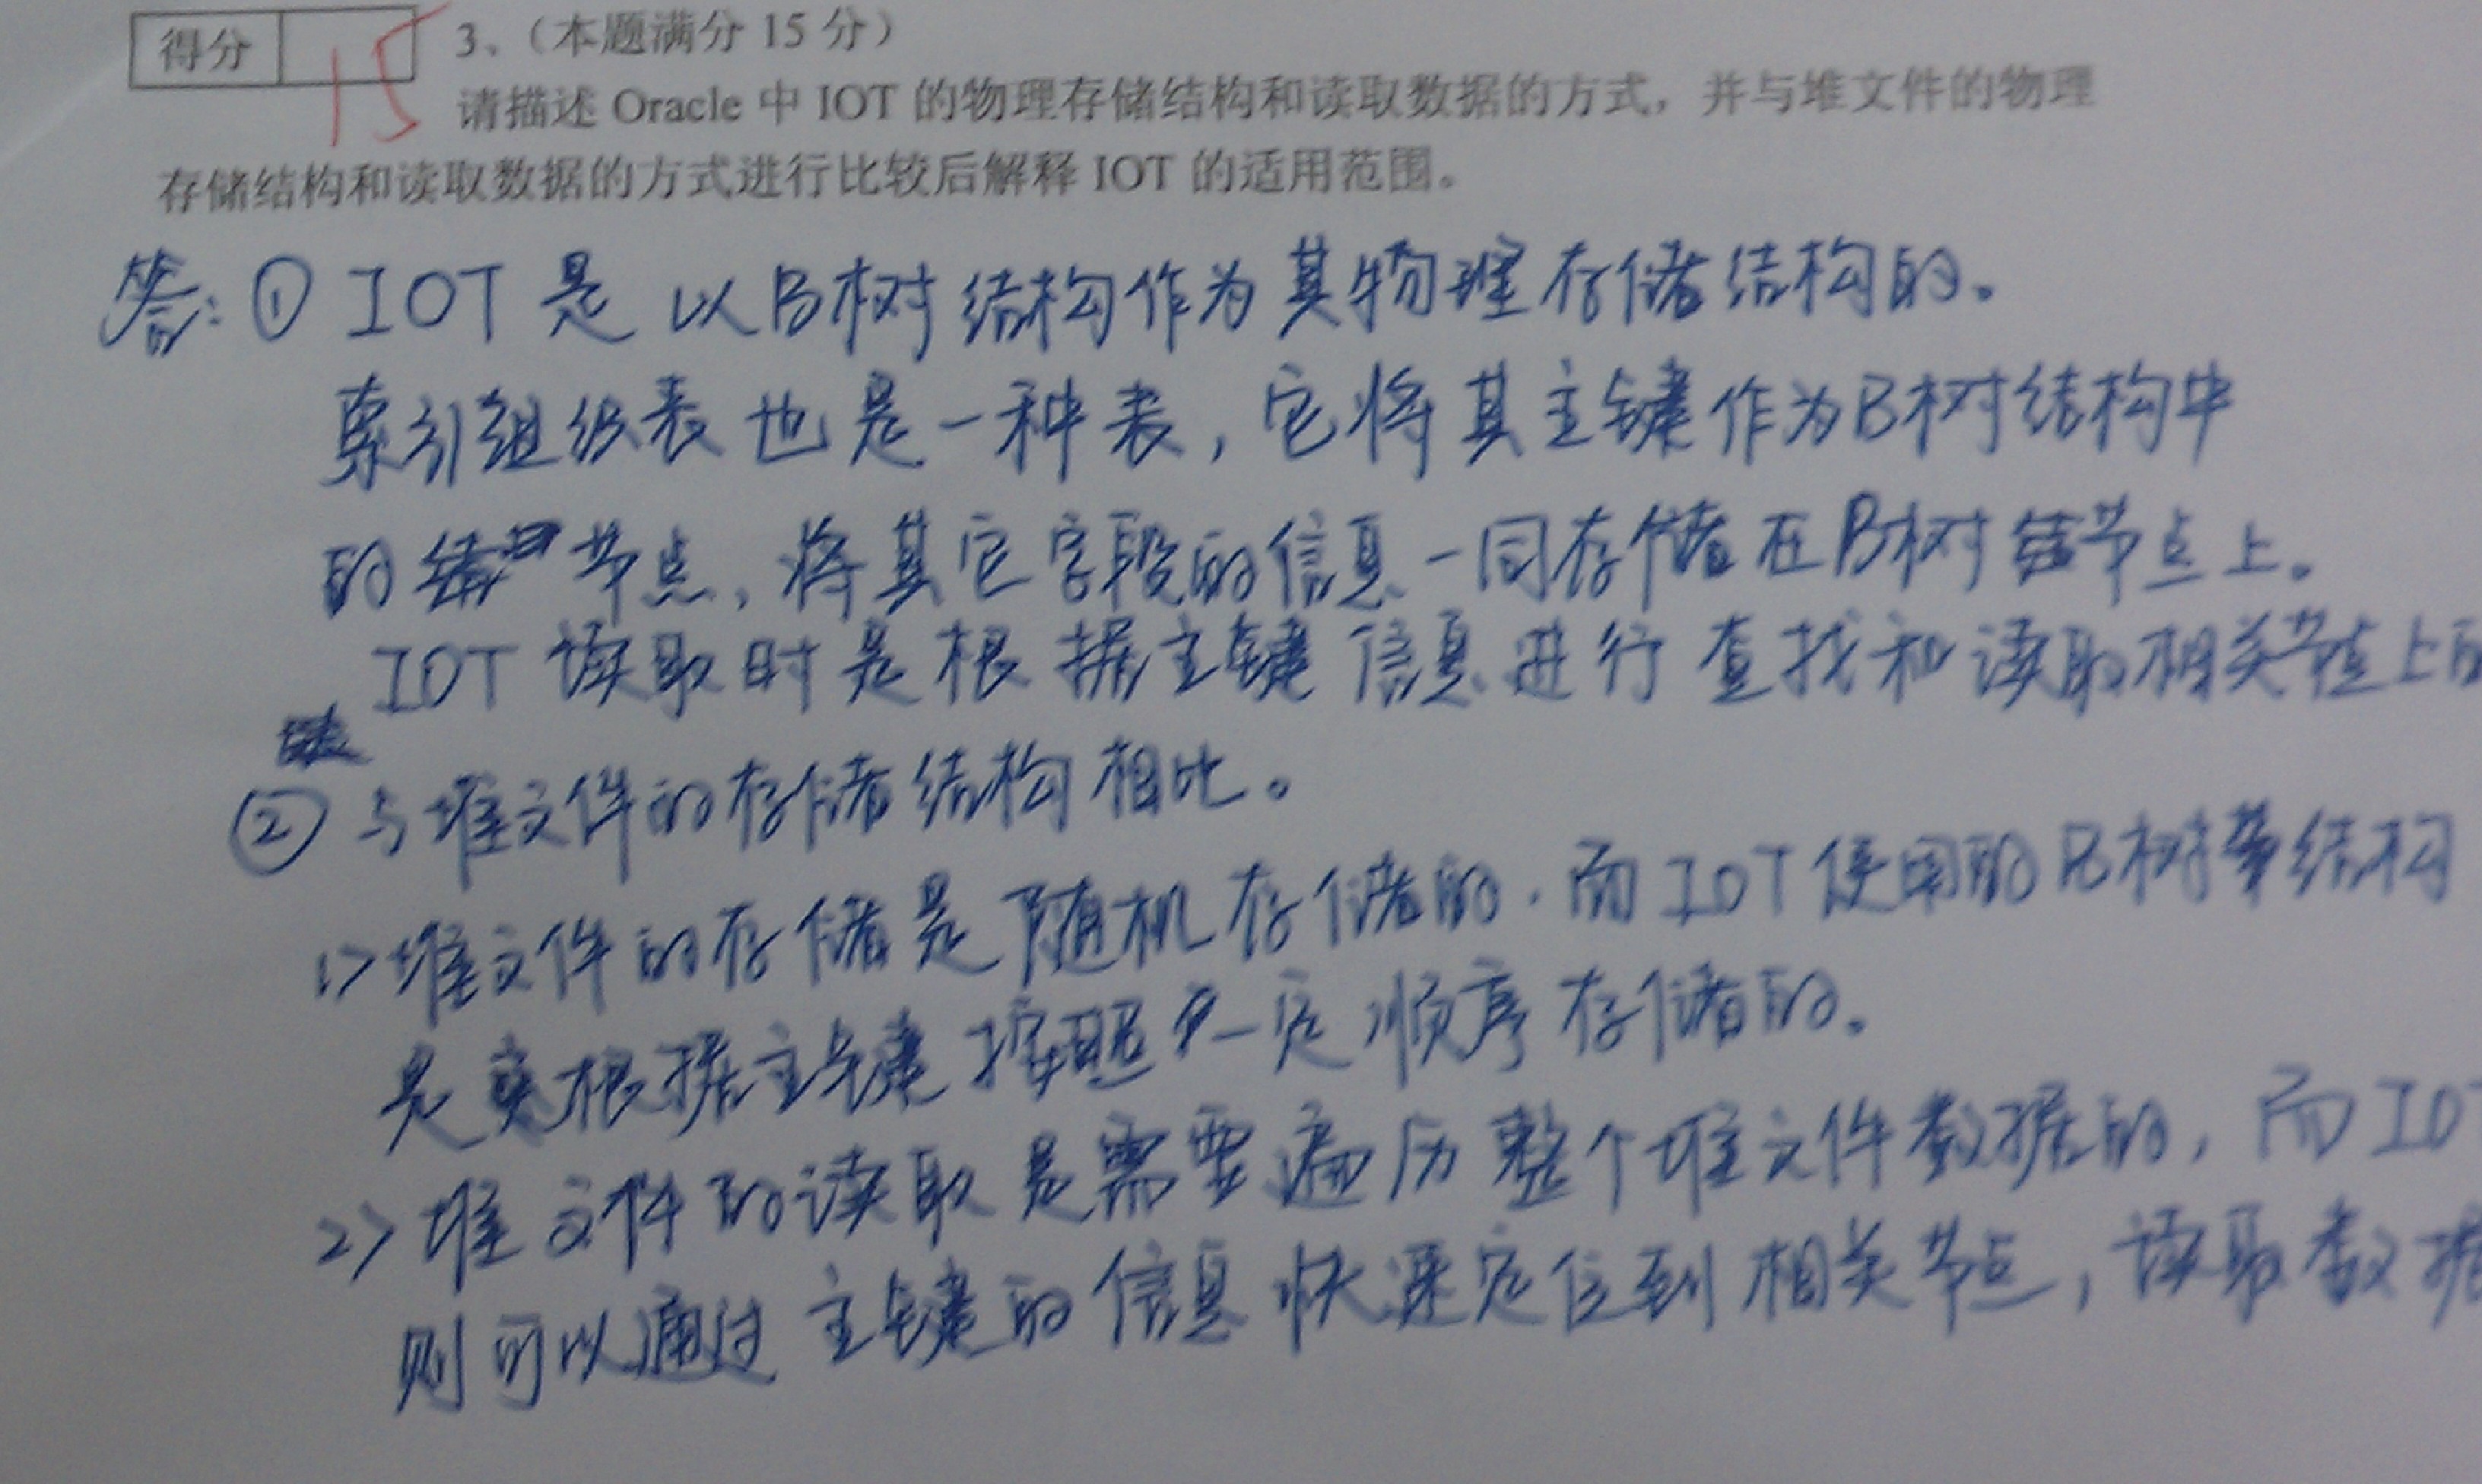 得分 15 3、（本题满分 15 分）
请描述 Oracle 中 IOT 的物理存储结构和读取数据的方式，并与堆文件的物理
存储结构和读取数据的方式进行比较后解释 IOT 的适用范围。
答：① IOT 是 以 B树 结构作为 其物理 存储结构的。
索引组织表 也是一种表，它将其主键作为B树结构中
的 节点，将其它字段的信息一同存储在B树节点上。
IOT 读取时是根据主键信息进行查找和读取相关节点上的
② 与堆文件的存储结构相比。
1> 堆文件的存储是随机存储的．而 IOT 使用的 B树 结构
是 根据主键按照 一定顺序存储的。
2> 堆文件的读取是需要遍历整个堆文件数据的，而 IOT
则可以通过主键的信息快速定位到相关节点，读取数据